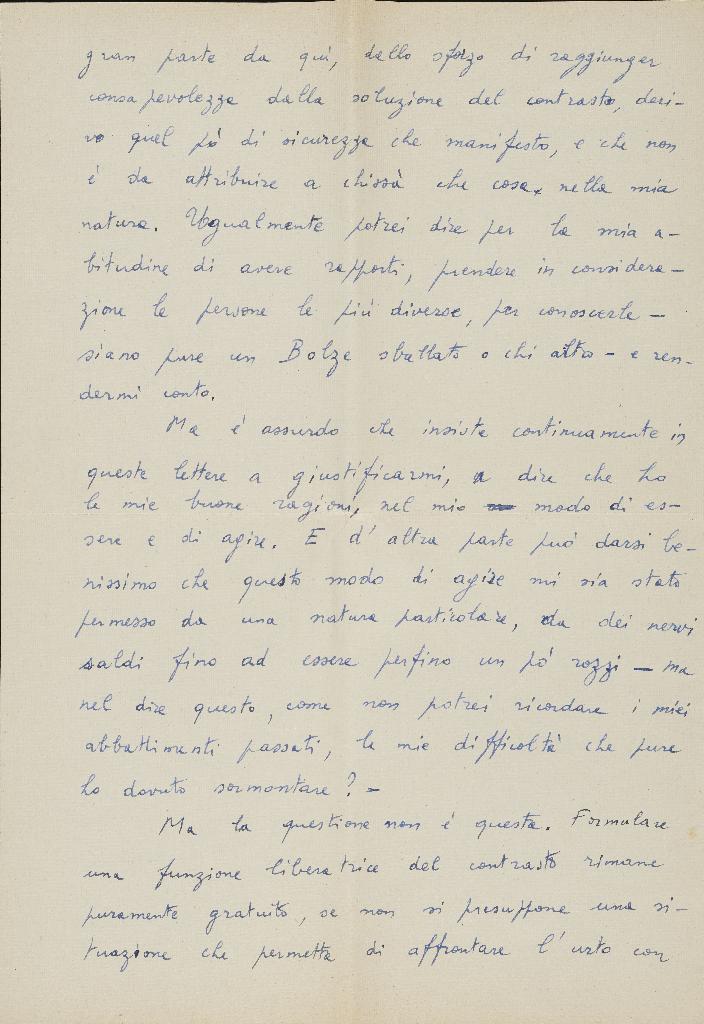 gran parte da quì, dallo sforzo di raggiunger
consapevolezza dalla soluzione del contrasto, deri-
vo quel pò di sicurezza che manifesto, e che non
é da attribuire a chissà che cosa nella mia
natura. Ugualmente potrei dire per la mia a-
bitudine di avere rapporti, prendere in considera-
zione le persone le più diverse, per conoscerle -
siano pure un Bolze sballato o chi altro - e ren-
dermi conto.
Ma é assurdo che insista continuamente in
queste lettere a giustificarmi, a dire che ho
le mie buone ragioni, nel mio modo di es-
sere e di agire. E d'altra parte può darsi be-
nissimo che questo modo di agire mi sia stato
permesso da una natura particolare, da dei nervi
saldi fino ad essere perfino un pò rozzi - ma
nel dire questo, come non potrei ricordare i miei
abbattimenti passati, le mie difficoltà che pure
ho dovuto sormontare? -
Ma la questione non é questa. Formulare
una funzione liberatrice del contrasto rimane
puramente gratuito, se non si presuppone una si-
tuazione che permetta di affrontare l'urto con